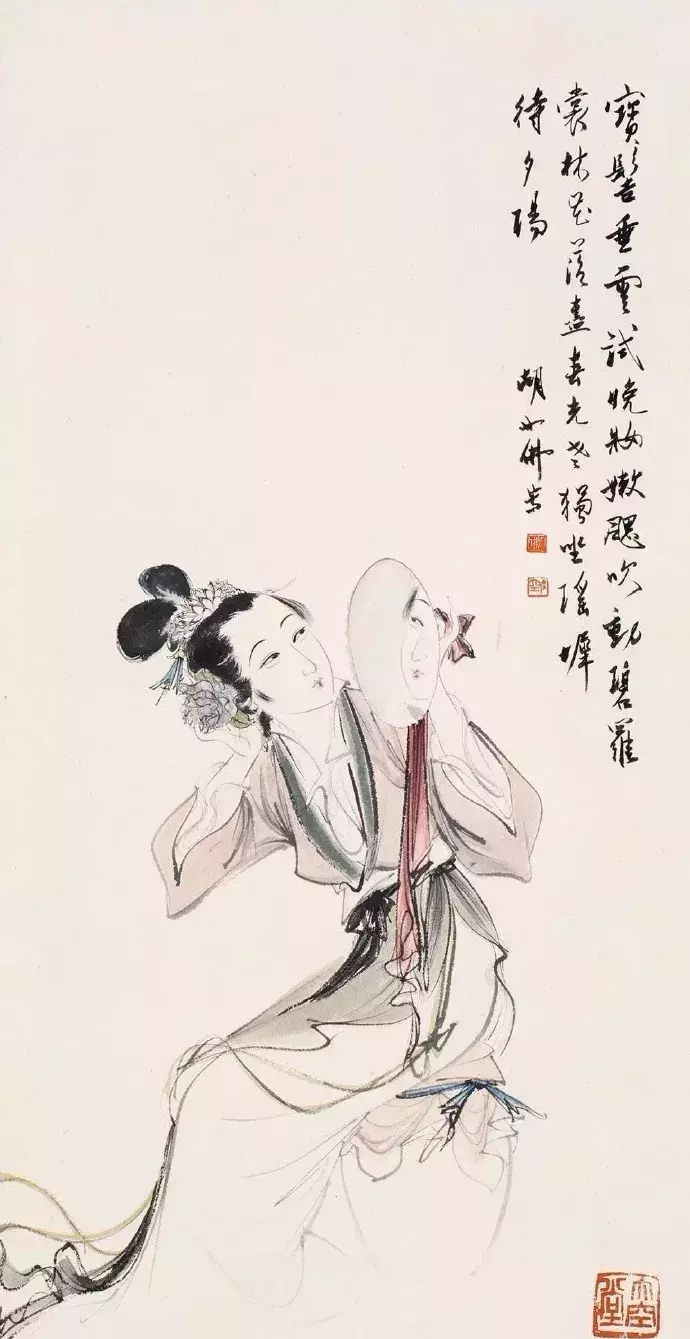 寶髻垂雲試晚妝嫩颸吹動碧羅
裳林花落盡春光老獨坐瑤墀
待夕陽
胡也佛
大空堂